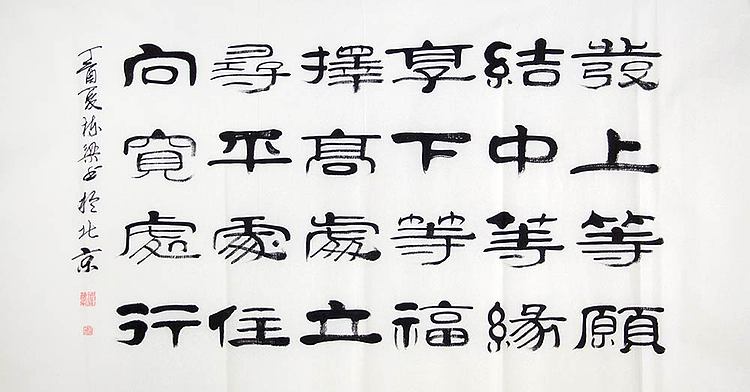 發上等願
結中等緣
享下等福
擇高處立
尋平處住
向寬處行
丁酉夏 梁書於北京